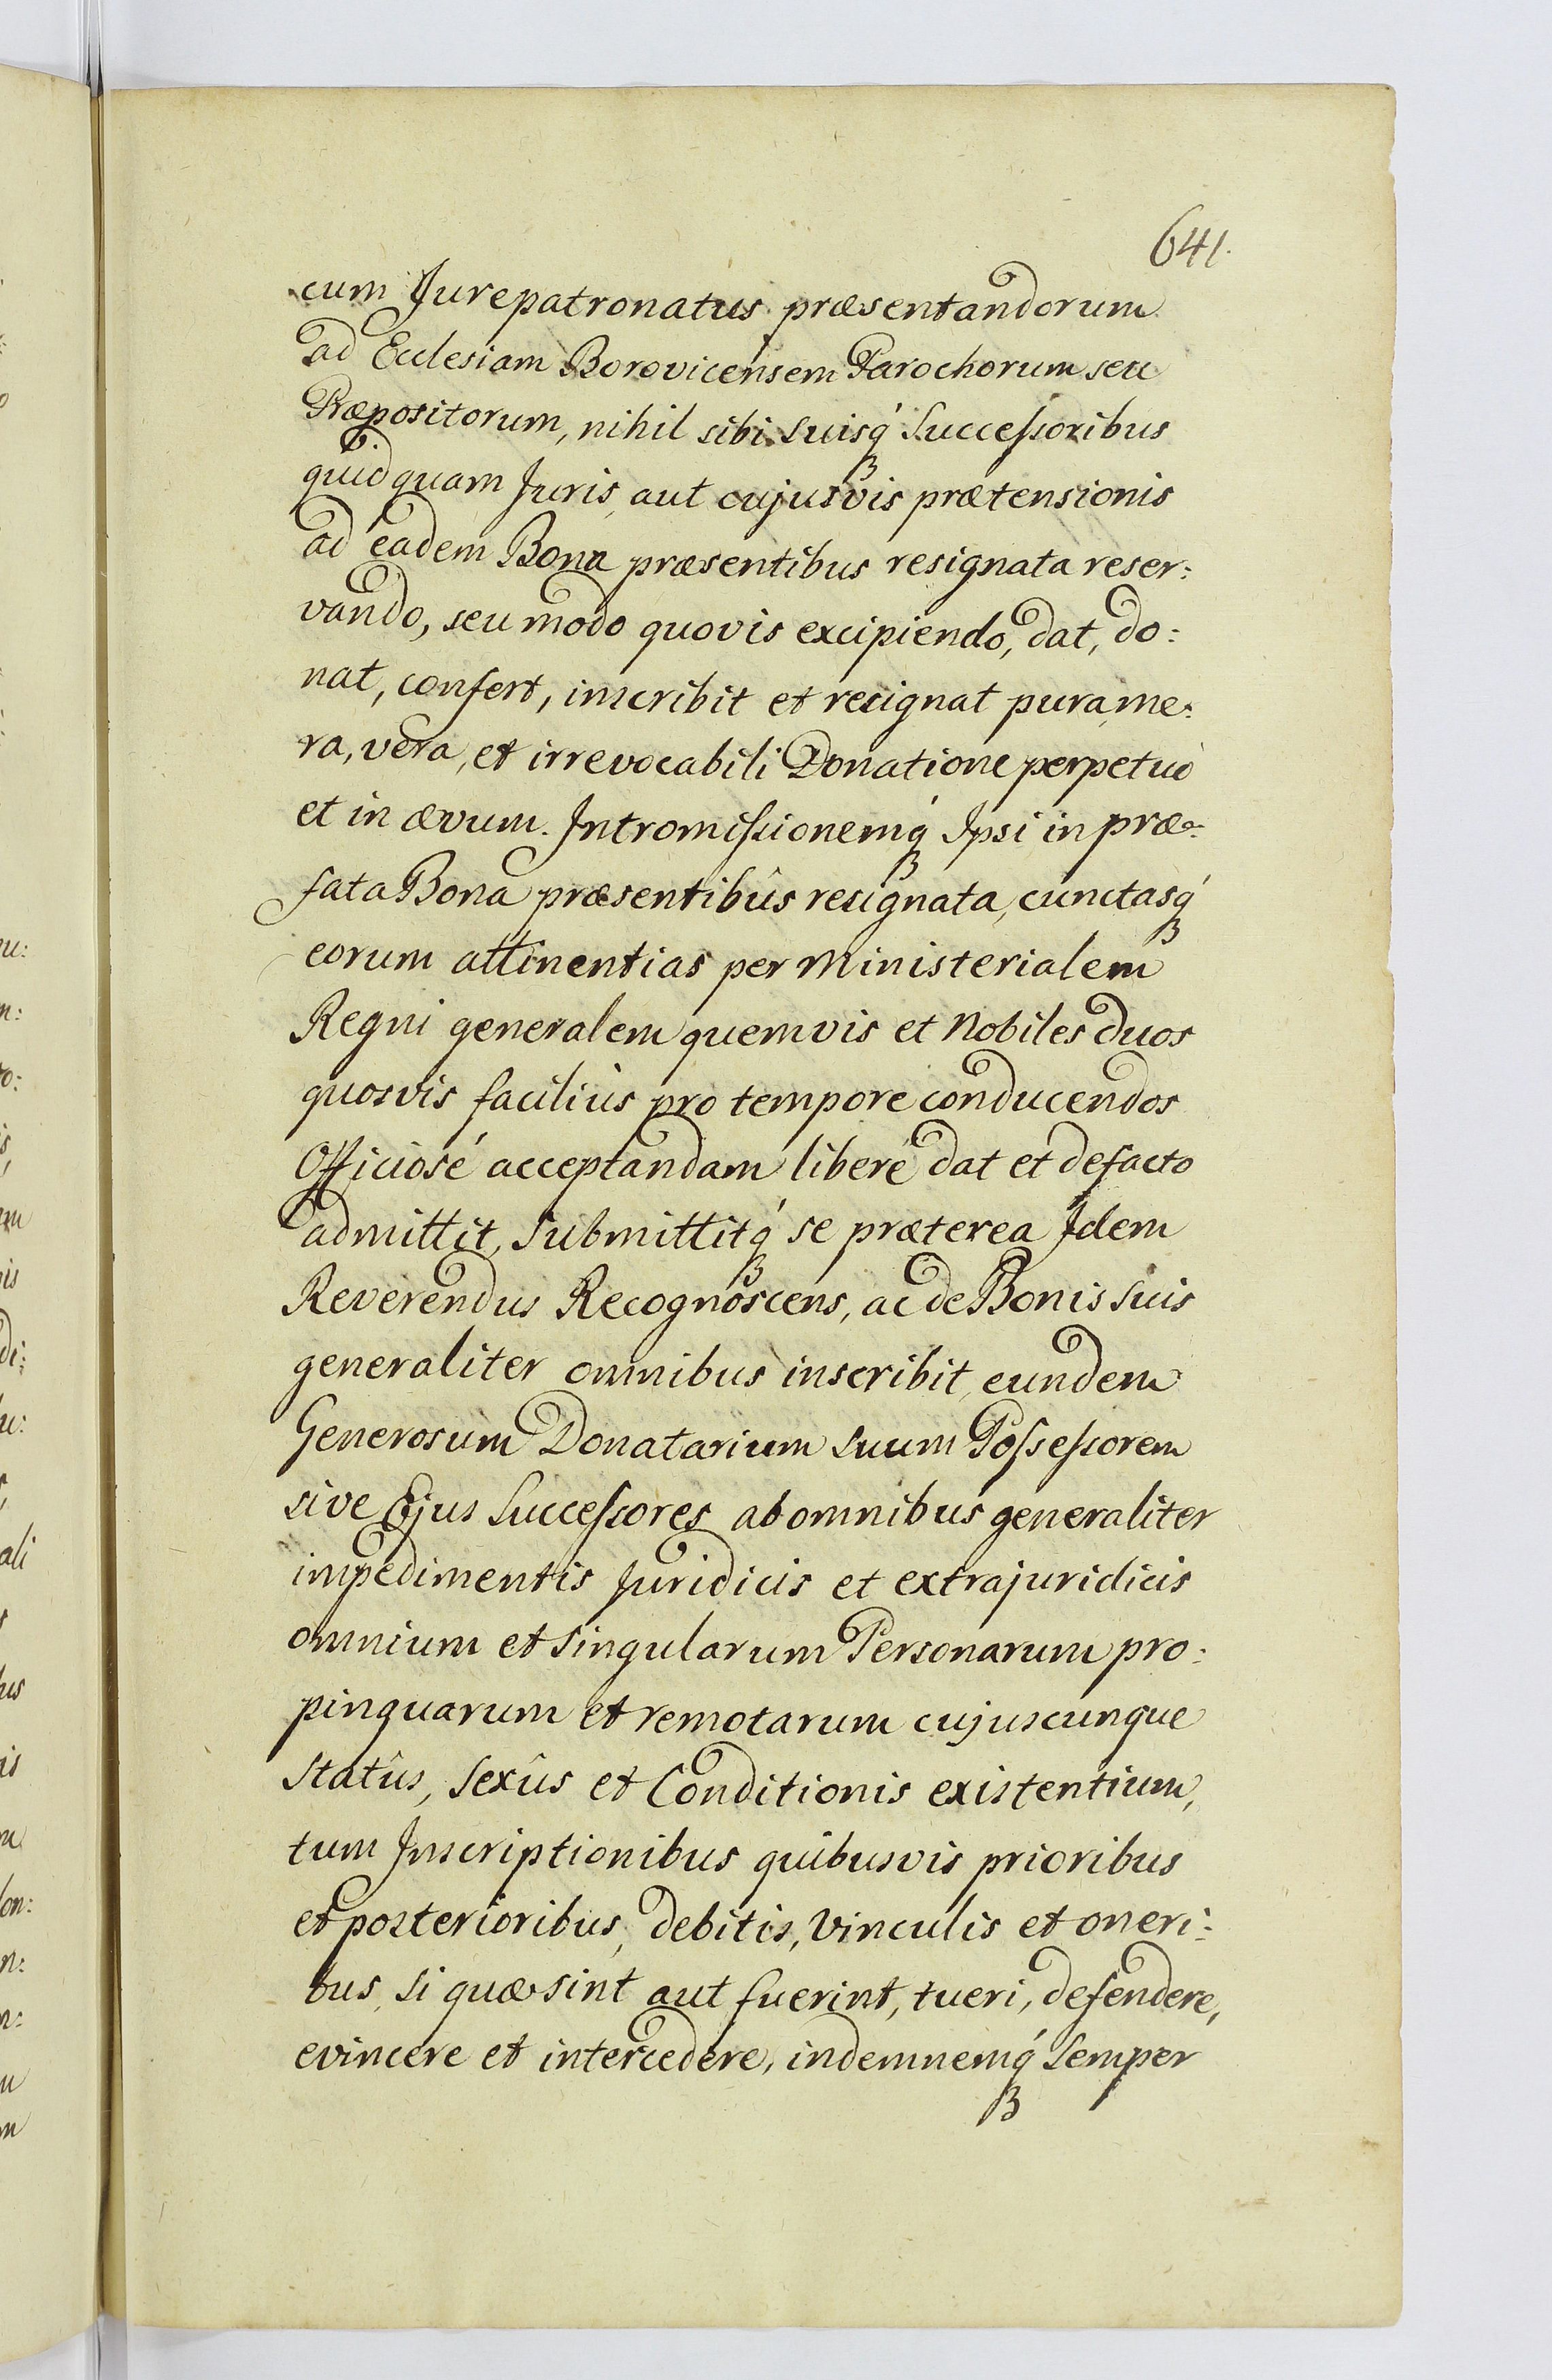 641.
cum Jurepatronatus præsentandorum
ad Ecclesiam Borovicensem Parochorum seu
Præpositorum, nihil sibi suisq́ Successoribus
quidquam Juris, aut cujusvis prætensionis
ad eadem Bona præsentibus resignata reser:
vando, seu modo quovis excipiendo, dat, do:
nat, confert, inscribit et resignat pura, me:
ra, vera, et irrevocabili Donatione perpetuò
et in ævum. Intromissionemq́ Ipsi in præ:
fata Bona præsentibus resignata, cunctasq́
eorum attinentias per Ministerialem
Regni generalem quemvis et Nobiles duos
quosvis facilius pro tempore conducendos
Officiosé acceptandam liberé dat et defacto
admittit, submittitq́ se præterea Idem
Reverendus Recognoscens, ac de Bonis suis
generaliter omnibus inscribit, eundem
Generosum Donatarium suum Possessorem
sive Ejus Successores ab omnibus generaliter
impedimentis Juridicis et extrajuridicis
omnium et singularum Personarum pro:
pinquarum et remotarum cujuscunque
statûs, sexûs et Conditionis existentium,
tum Inscriptionibus quibusvis prioribus
et posterioribus, debitis, vinculis et oneri:
bus, si quæ sint aut fuerint, tueri, defendere,
evincere et intercedere, indemnemq́ semper